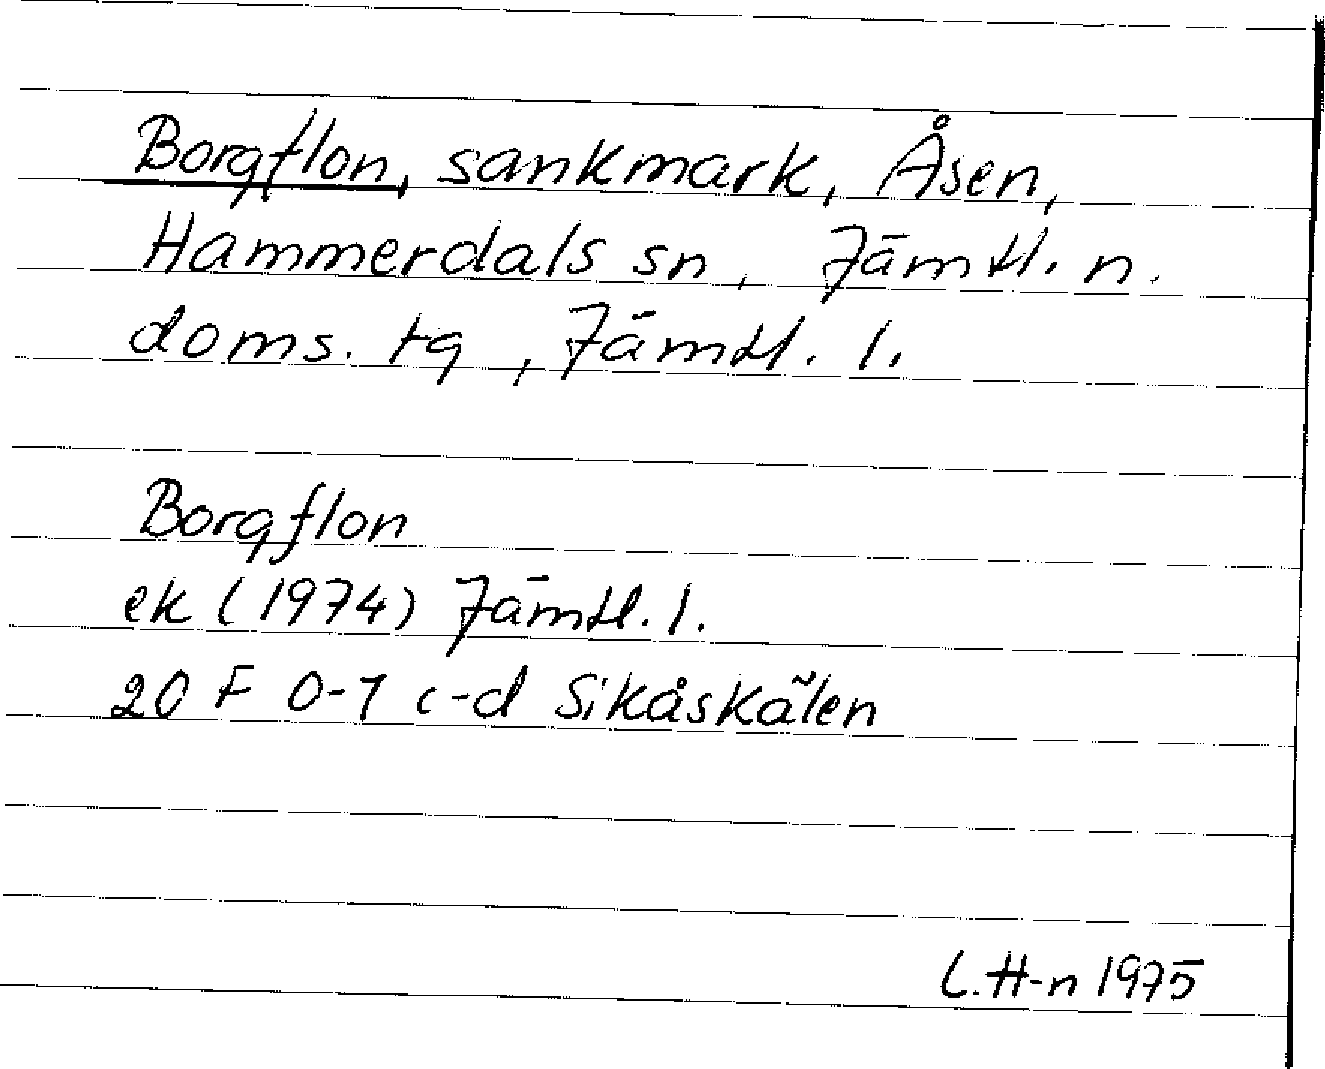 Borgflon, sankmark, Åsen,
Hammerdals sn, Jämtl. n.
doms. tg, Jämtl. l.
Borgflon
ek (1974) Jämtl. l.
20 F 0-1 c-d Sikåskälen
L.H-n 1975